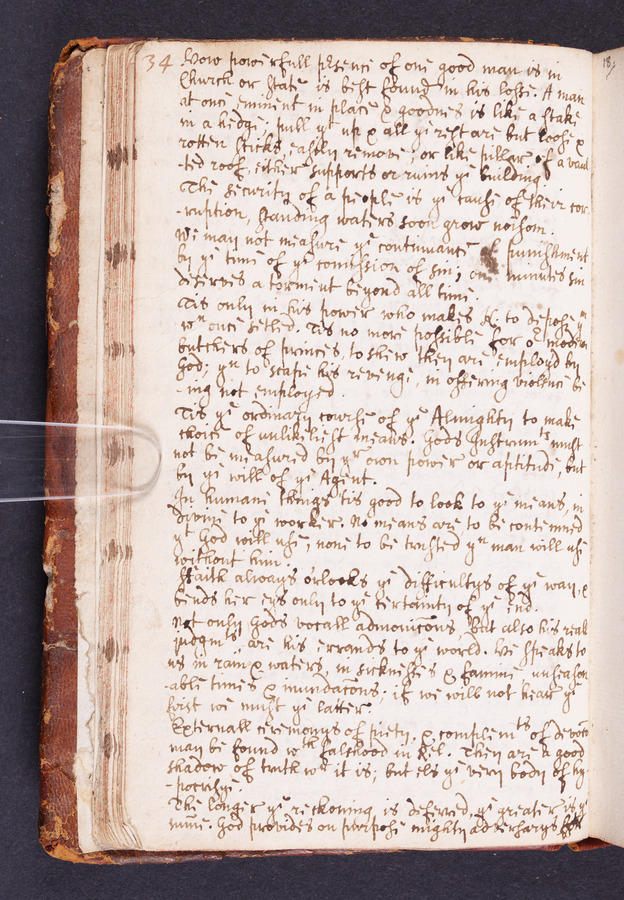 34 How powerfull prsence of one good man is in
Church or state is best found in his losse. A man
at once eminent in place & goodnes is like a stake
in a hedge; pull yt up & all ye rest are but loose &
rotten sticks, easily remove; or like pillar of a vaul
-ted roof, either supports or ruins ye building.
The security of a people is ye cause of their cor
-ruption, standing waters soon grow noisom.
We may not measure ye continuance of punishment
by ye time of ye comission of sin; one minutes sin
deserves a torment beyond all time.
Tis only in his power who makes K. to depose ym
wn once setled. Tis no more possible for or modern
butchers of princes, to shew they are employd by
God; yn to scape his revenge, in offering violence be
-ing not employed.
Tis ye ordinary course of ye Almighty to make
choice of unlikeliest means. Gods Instrumts must
not be measured by yr own power or aptitude, but
by ye will of ye Agent.
In humane things tis good to look to ye means, in
divine to ye worker. No means are to be contemned
yt God will use; none to be trusted yn man will use
without him.
Faith always orlooks ye difficultys of ye way, &
bends her eys only to ye certainty of ye end.
Not only Gods vocall admonicons, but also his reall
judgmts are his errands to ye world. He speaks to
us in rain & waters, in sicknesses & famine, unseason
-able times & inundacons; if we will not hear ye
first we must ye latter.
Externall ceremonys of piety, & complemts of devoco
may be found wth falshood in Rel. They are a good
shadow of truth wr it is; but els ye very body of hy
-pocrisye.
The longer ye reckoning is deferred, ye greater is ye
sume. God provides on purpose mighty adversarys for
18,